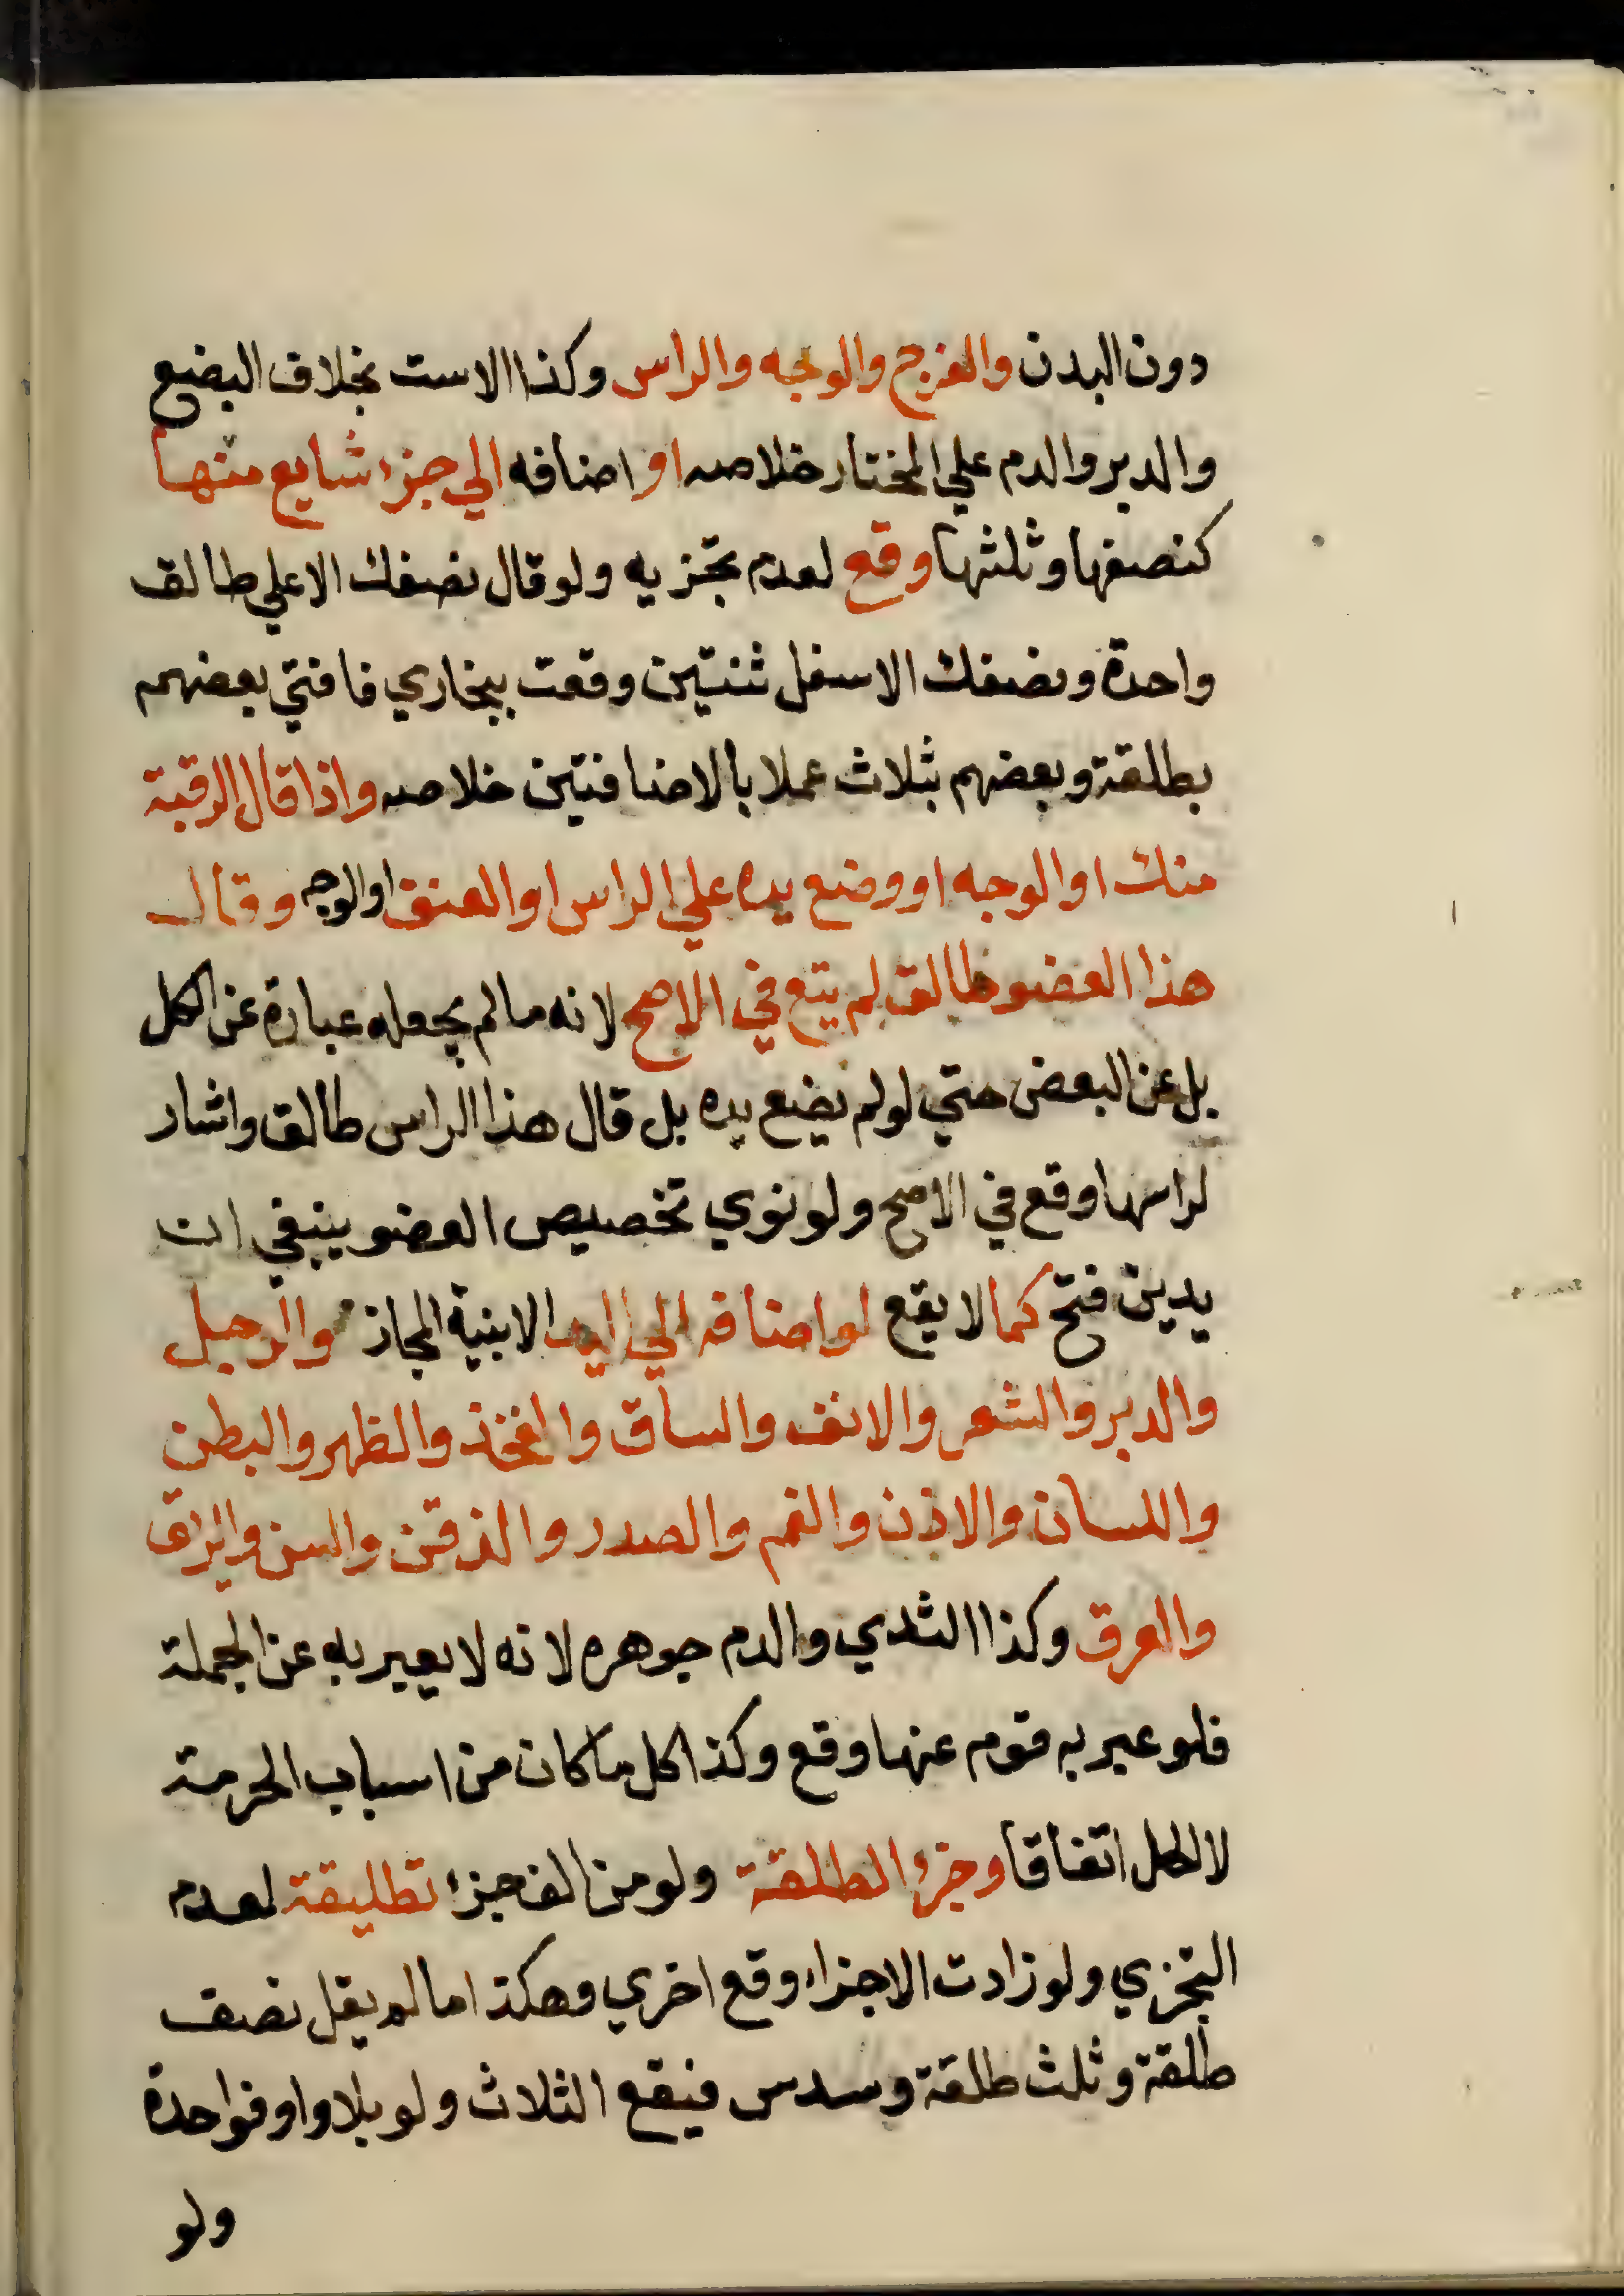 دون البدن والفرج والوجه والراس وكذا الاست بخلاف البضع
والدبر والدم علي المختار خلاصه او اضافه الي جزء شايع منها
كنصفها وثلثها وقع لعدم تجزيه ولو قال نصفك الاعلي طالق
واحدة ونصفك الاسفل ثنتين وقعت ببخاري فافتي بعضهم
بطلقة وبعضهم بثلاث عملا بالاضافتين خلاصه واذا قال الرقبة
منك او الوجه او وضع يده علي الراس او العنق او الوجه وقال
هذا العضو طالق لم يقع في الاصح لانه مالم يجعله عبارة عن الكل
بل عن البعض حتي لو لم يضع يده بل قال هذا الراس طالق واشار
لراسها وقع في الاصح ولو نوي تخصيص العضو ينبغي ان
يدين فتح كما لا يقع لو اضافه الي اليد الا بنية المجاز والرجل
والدبر والشعر والانف والساق والفخذ والظهر والبطن
واللسان والاذن والفم والصدر والذقن والسن والريق
والعرق وكذا الثدي والدم جوهره لانه لا يعبر به عن الجملة
فلو عبر به قوم عنها وقع وكذا كل ما كان من اسباب الحرمة
لا الحل اتفاقا وجزء الطلقة ولو من الف جزء تطليقة لعدم
التجزي ولو زادت الاجزاء وقع اخري وهكذا مالم يقل نصف
طلقة وثلث طلقة وسدس فيقع الثلاث ولو بلا واو فواحدة
ولو